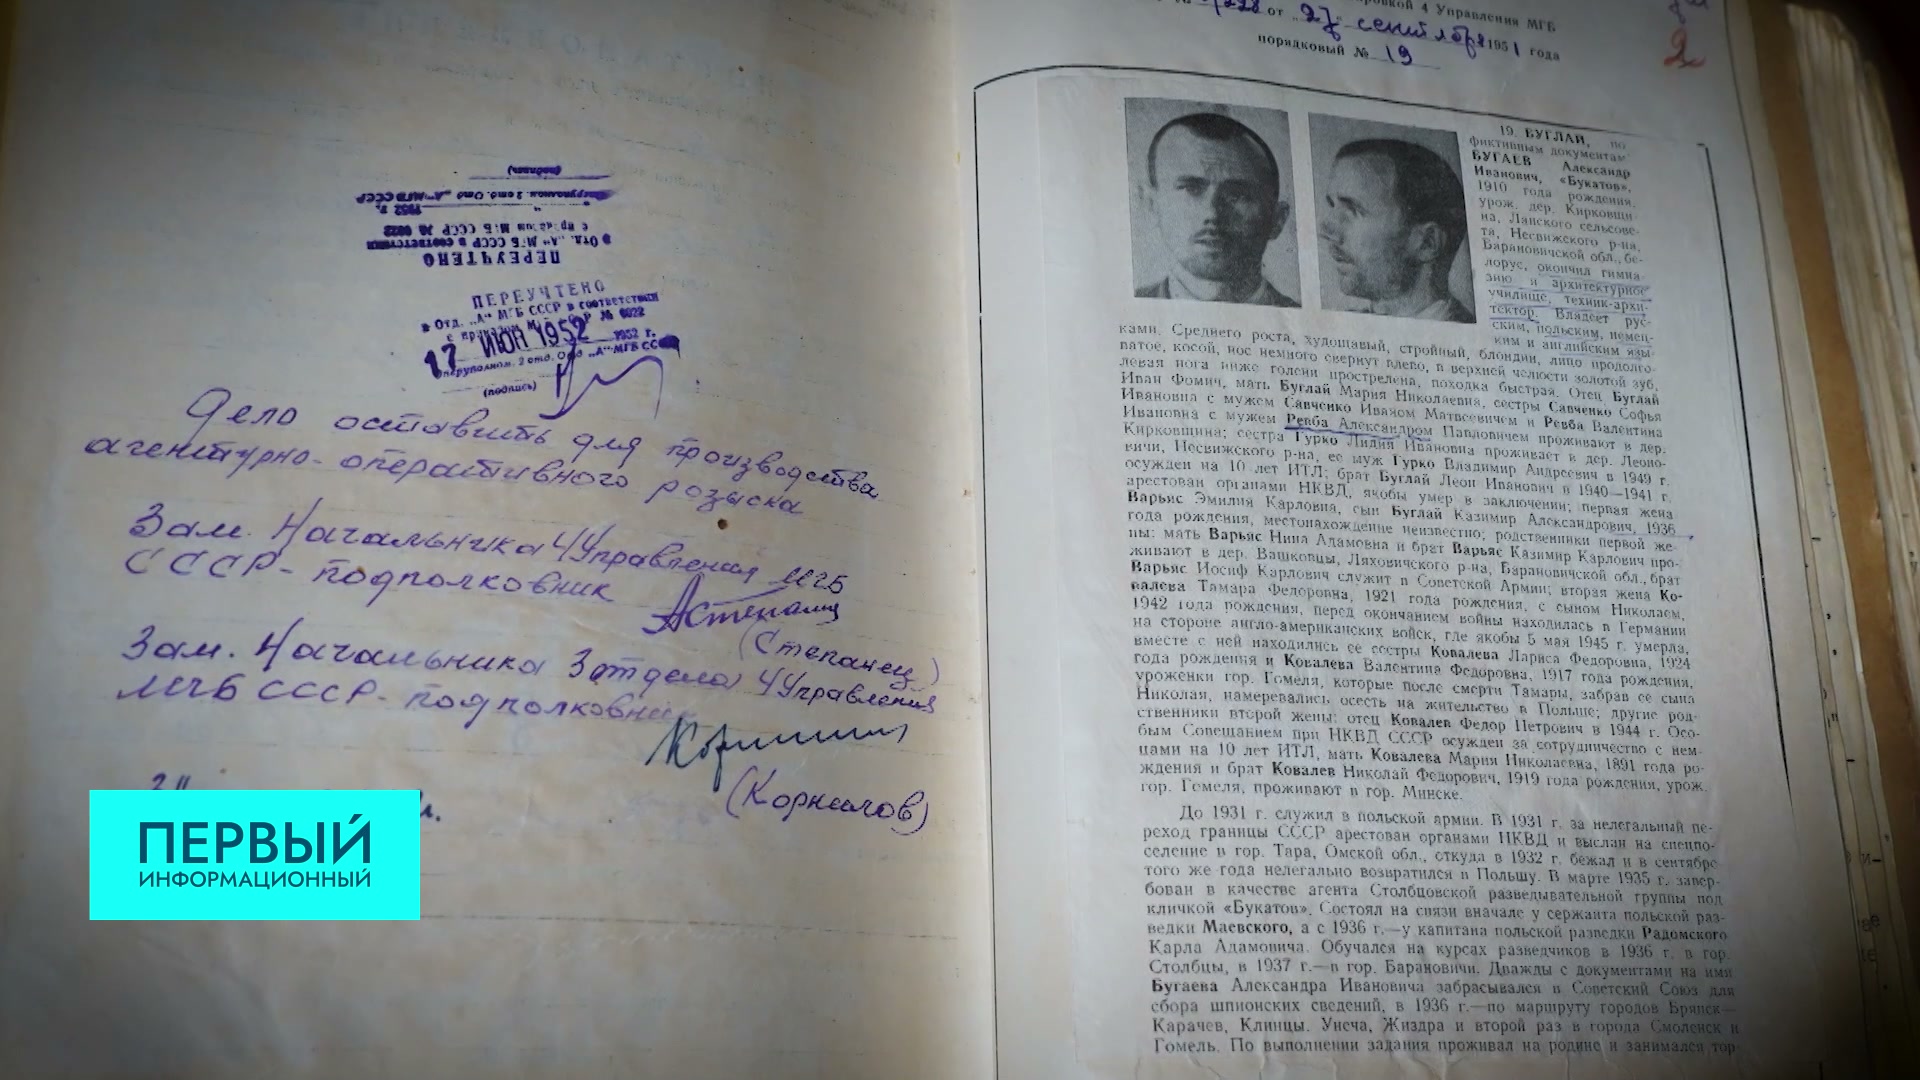 (подпись)
1952 г.
ПЕРЕУЧТЕНО
в Отд. „А“ МГБ СССР в соответствии
с приказом МГБ СССР № 0022
ПЕРЕУЧТЕНО
в Отд. „А“ МГБ СССР в соответствии
с приказом МГБ СССР № 0022
17 ИЮН 1952 1952 г.
Оперуполном. 2 отд. Отд „А“ МГБ СССР
(подпись)
Дело оставить для производства
агентурно-оперативного розыска
Зам. Начальника 4 Управления МГБ
СССР - подполковник
(Степанец)
Зам. Начальника 3 отдела 4 Управления
МГБ СССР - подполковник
(Корнилов)
ПЕРВЫЙ
ИНФОРМАЦИОННЫЙ
4 Управления МГБ
от „27“ сентября 1951 года
порядковый № 19
19. БУГЛАЙ, по
фиктивным документам
БУГАЕВ Александр
Иванович, «Букатов»,
1910 года рождения,
урож. дер. Кирковщи-
на, Ланского сельсове-
та, Несвижского р-на,
Барановичской обл., бе-
лорус, окончил гимна-
зию и архитектурное
училище, техник-архи-
тектор. Владеет рус-
ским, польским, немец-
ким и английским язы-
ками. Среднего роста, худощавый, стройный, блондин, лицо продолго-
ватое, косой, нос немного свернут влево, в верхней челюсти золотой зуб,
левая нога ниже голени прострелена, походка быстрая. Отец Буглай
Иван Фомич, мать Буглай Мария Николаевна, сестры Савченко Софья
Ивановна с мужем Савченко Иваном Матвеевичем и Ревба Валентина
Ивановна с мужем Ревба Александром Павловичем проживают в дер.
Кирковщина; сестра Гурко Лидия Ивановна проживает в дер. Леоно-
вичи, Несвижского р-на, ее муж Гурко Владимир Андреевич в 1949 г.
осужден на 10 лет ИТЛ; брат Буглай Леон Иванович в 1940—1941 г.
арестован органами НКВД, якобы умер в заключении; первая жена
Варьяс Эмилия Карловна, сын Буглай Казимир Александрович, 1936
года рождения, местонахождение неизвестно; родственники первой же-
ны: мать Варьяс Нина Адамовна и брат Варьяс Казимир Карлович про-
живают в дер. Вашковцы, Ляховичского р-на, Барановичской обл., брат
Варьяс Иосиф Карлович служит в Советской Армии; вторая жена Ко-
валева Тамара Федоровна, 1921 года рождения, с сыном Николаем,
1942 года рождения, перед окончанием войны находилась в Германии
на стороне англо-американских войск, где якобы 5 мая 1945 г. умерла,
вместе с ней находились ее сестры Ковалева Лариса Федоровна, 1924
года рождения и Ковалева Валентина Федоровна, 1917 года рождения,
уроженки гор. Гомеля, которые после смерти Тамары, забрав ее сына
Николая, намеревались осесть на жительство в Польше; другие род-
ственники второй жены: отец Ковалев Федор Петрович в 1944 г. Осо-
бым Совещанием при НКВД СССР осужден за сотрудничество с нем-
цами на 10 лет ИТЛ, мать Ковалева Мария Николаевна, 1891 года ро-
ждения и брат Ковалев Николай Федорович, 1919 года рождения, урож.
гор. Гомеля, проживают в гор. Минске.
До 1931 г. служил в польской армии. В 1931 г. за нелегальный пе-
реход границы СССР арестован органами НКВД и выслан на спецпо-
селение в гор. Тара, Омской обл., откуда в 1932 г. бежал и в сентябре
того же года нелегально возвратился в Польшу. В марте 1935 г. завер-
бован в качестве агента Столбцовской разведывательной группы под
кличкой «Букатов». Состоял на связи вначале у сержанта польской раз-
ведки Маевского, а с 1936 г.—у капитана польской разведки Радомского
Карла Адамовича. Обучался на курсах разведчиков в 1936 г. в гор.
Столбцы, в 1937 г.—в гор. Барановичи. Дважды с документами на имя
Бугаева Александра Ивановича забрасывался в Советский Союз для
сбора шпионских сведений, в 1936 г.—по маршруту городов Брянск—
Карачев, Клинцы, Унеча, Жиздра и второй раз в города Смоленск и
Гомель. По выполнении задания проживал на родине и занимался тор-